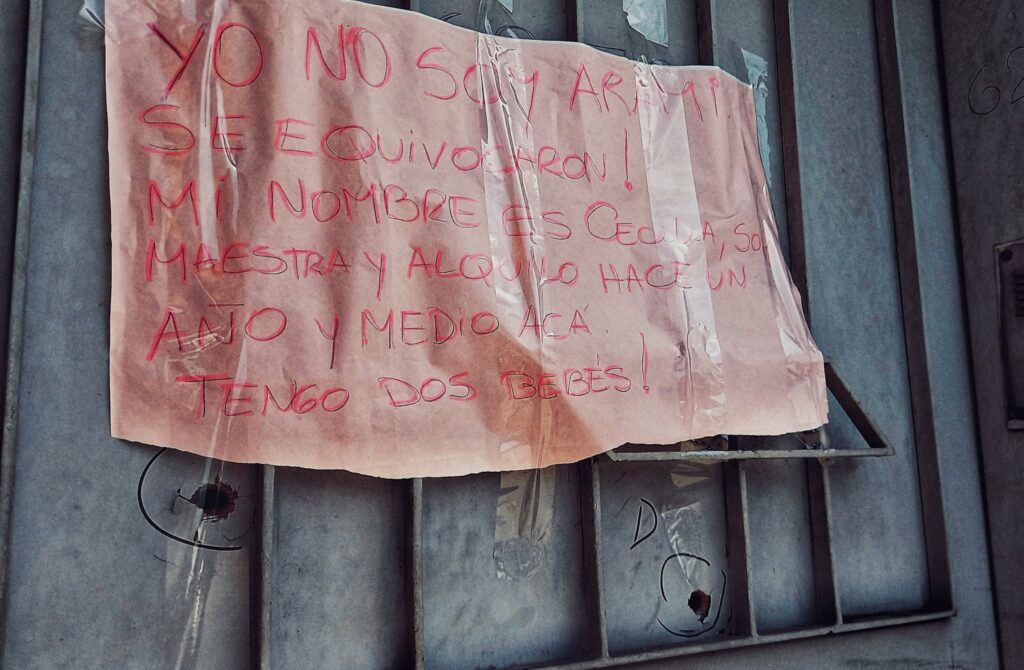 YO NO SOY ARAMI.
SE EQUIVOCARON!
MI NOMBRE ES CECILIA, SOY
MAESTRA Y ALQUILO HACE UN
AÑO Y MEDIO ACA.
TENGO DOS BEBÉS!
D